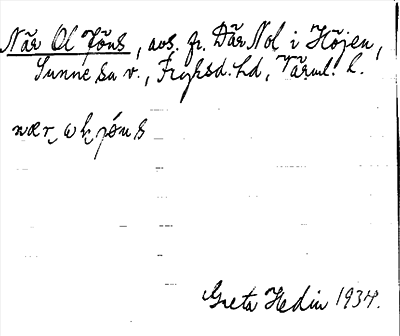 När Ol Jöns, avs. fr. Där Nol i Höjen,
Sunne sn v., Fryksd. hd, Värml. l.
Greta Hedin 1934.